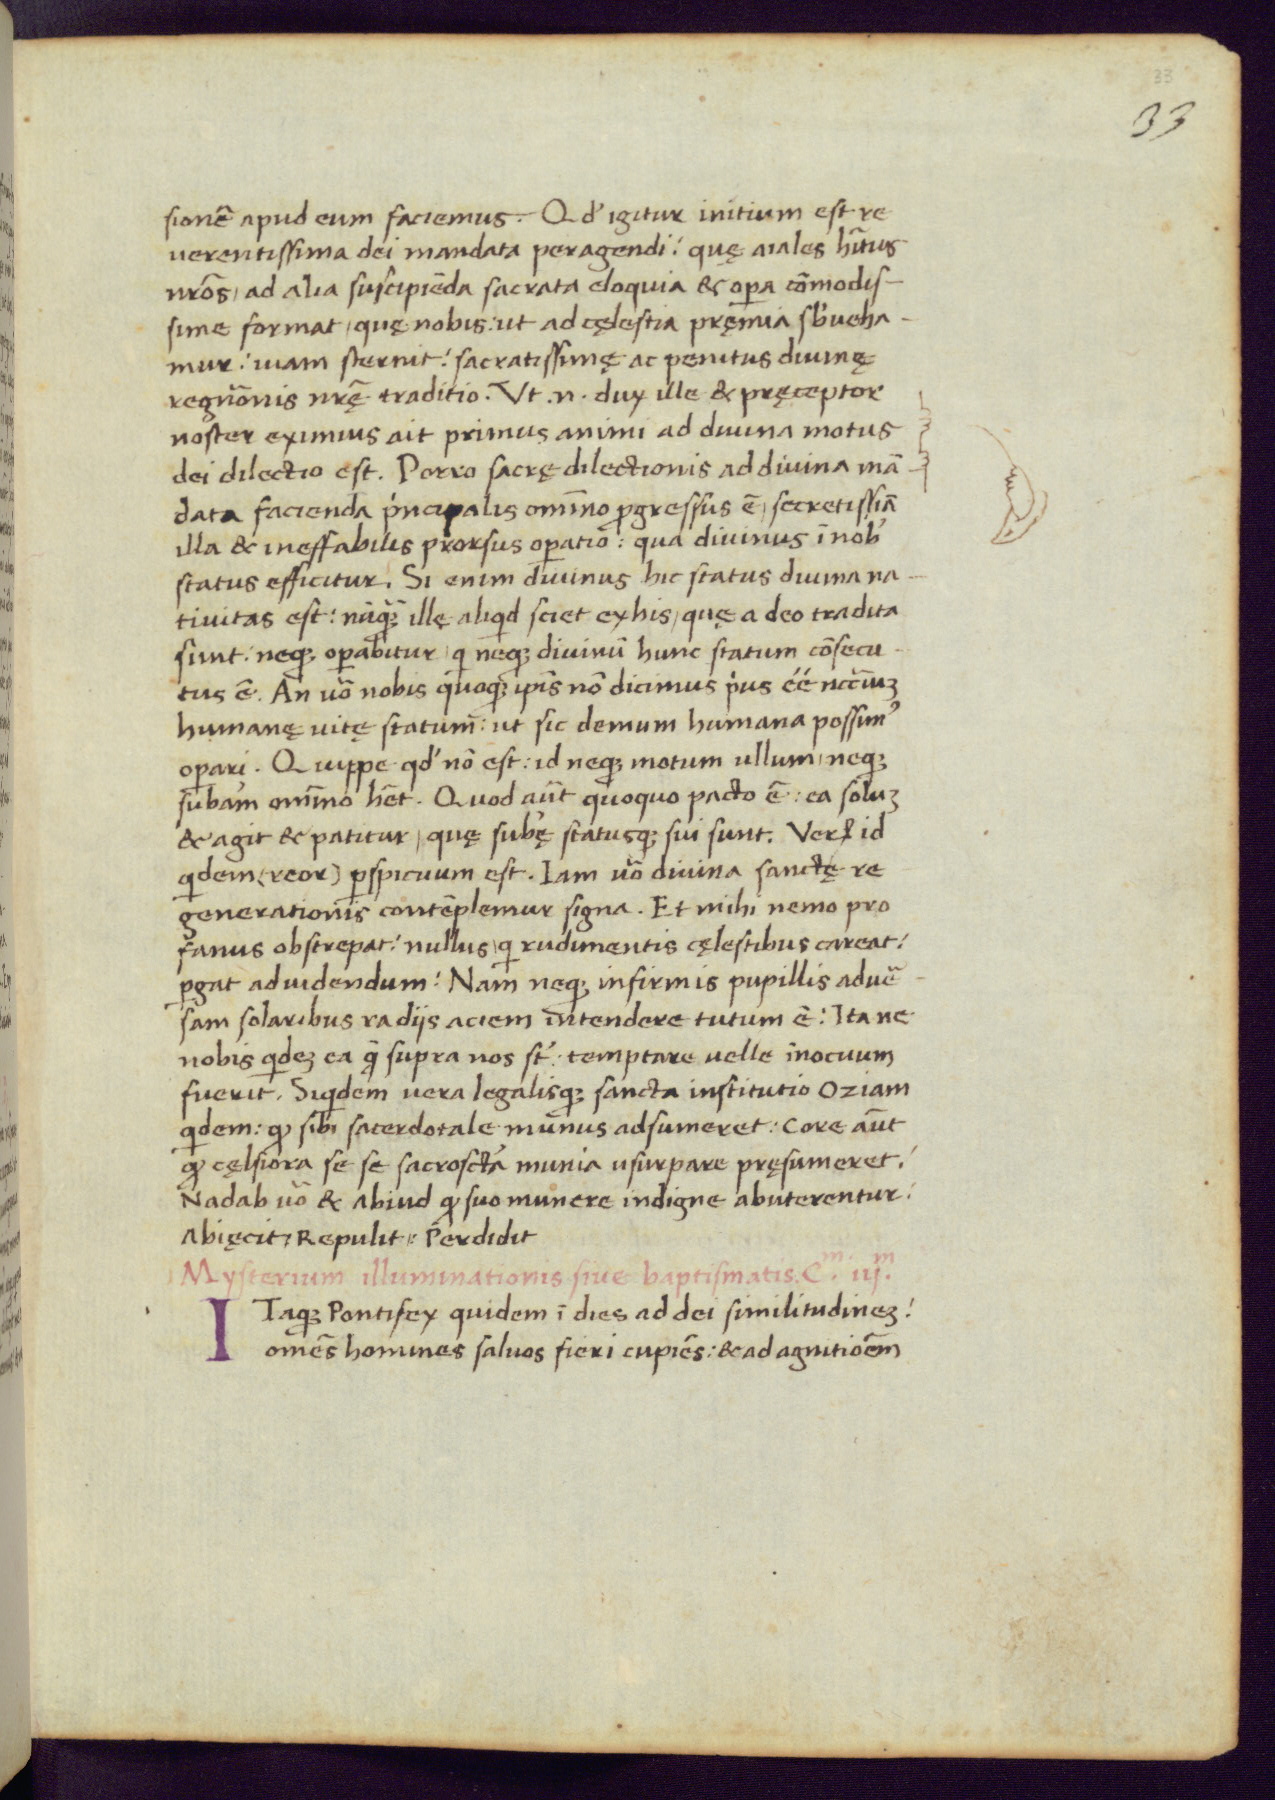 33
33
sionē apud eum faciemus. Qd' igitur initium est re
uerentissima dei mandata peragendi: quę aiales hītus
nrōs, ad alia suscipiēda sacrata eloquia & opa cōmodis-
sime format, quę nobis: ut ad cęlestia pręmia sbueha-
mur: uiam sternit: sacratissimę ac penitus diuinę
regnr̄onis nrę̄ traditio. Vt .n. dux ille & pręceptor
noster eximius ait primus animi ad diuina motus
dei dilectio est. Porro sacrę dilectionis ad diuina mā-
data facienda pncipalis omīno pgressus ē, secretissiā
illa & ineffabilis prorsus opatio: qua diuinus ī nob'
status efficitur. Si enim diuinus hic status diuina na-
tiuitas est: nūqꝫ illę aliqd sciet ex his, quę a deo tradita
sunt: neqꝫ opabitur, q neqꝫ diuinū hunc statum cōsecu-
tus ē. An uō nobis quoqꝫ ipīs nō dicimus pus éé nccīuꝫ
humanę uitę statum: ut sic demum humana possim'
opari. Quippe qd' nō est: id neqꝫ motum ullum, neqꝫ
subām omīno hēt. Quod aūt quoquo pacto ē: ea soluꝫ
& agit & patitur, quę subę̄ statusqꝫ sui sunt. Verꝝ id
qdem (reor) pspicuum est. Iam uō diuina sanctę re
generationis contēplemur signa. Et mihi nemo pro
fanus obstrepat: nullus, q rudimentis cęlestibus careat:
pgat ad uidendum: Nam neqꝫ infirmis pupillis aduē-
sam solaribus radijs aciem intendere tutum ē: Ita ne
nobis qdeꝫ ea q̄ supra nos st̄: temptare uelle īnocuum
fuerit. Siqdem uera legalisqꝫ sancta institutio Oziam
qdem: qꝫ sibi sacerdotale munus adsumeret: Core aūt
qꝫ cęlsiora se se sacroscta munia usurpare pręsumeret:
Nadab uō & Abiud qꝫ suo munere indigne abuterentur:
Abięcit: Repulit: Perdidit
Mysterium illuminationis siue baptismatis. Cm. iijm.
ITaqꝫ Pontifex quidem ī dies ad dei similitudineꝫ:
omēs homines saluos fieri cupiēs: & ad agnitiōem